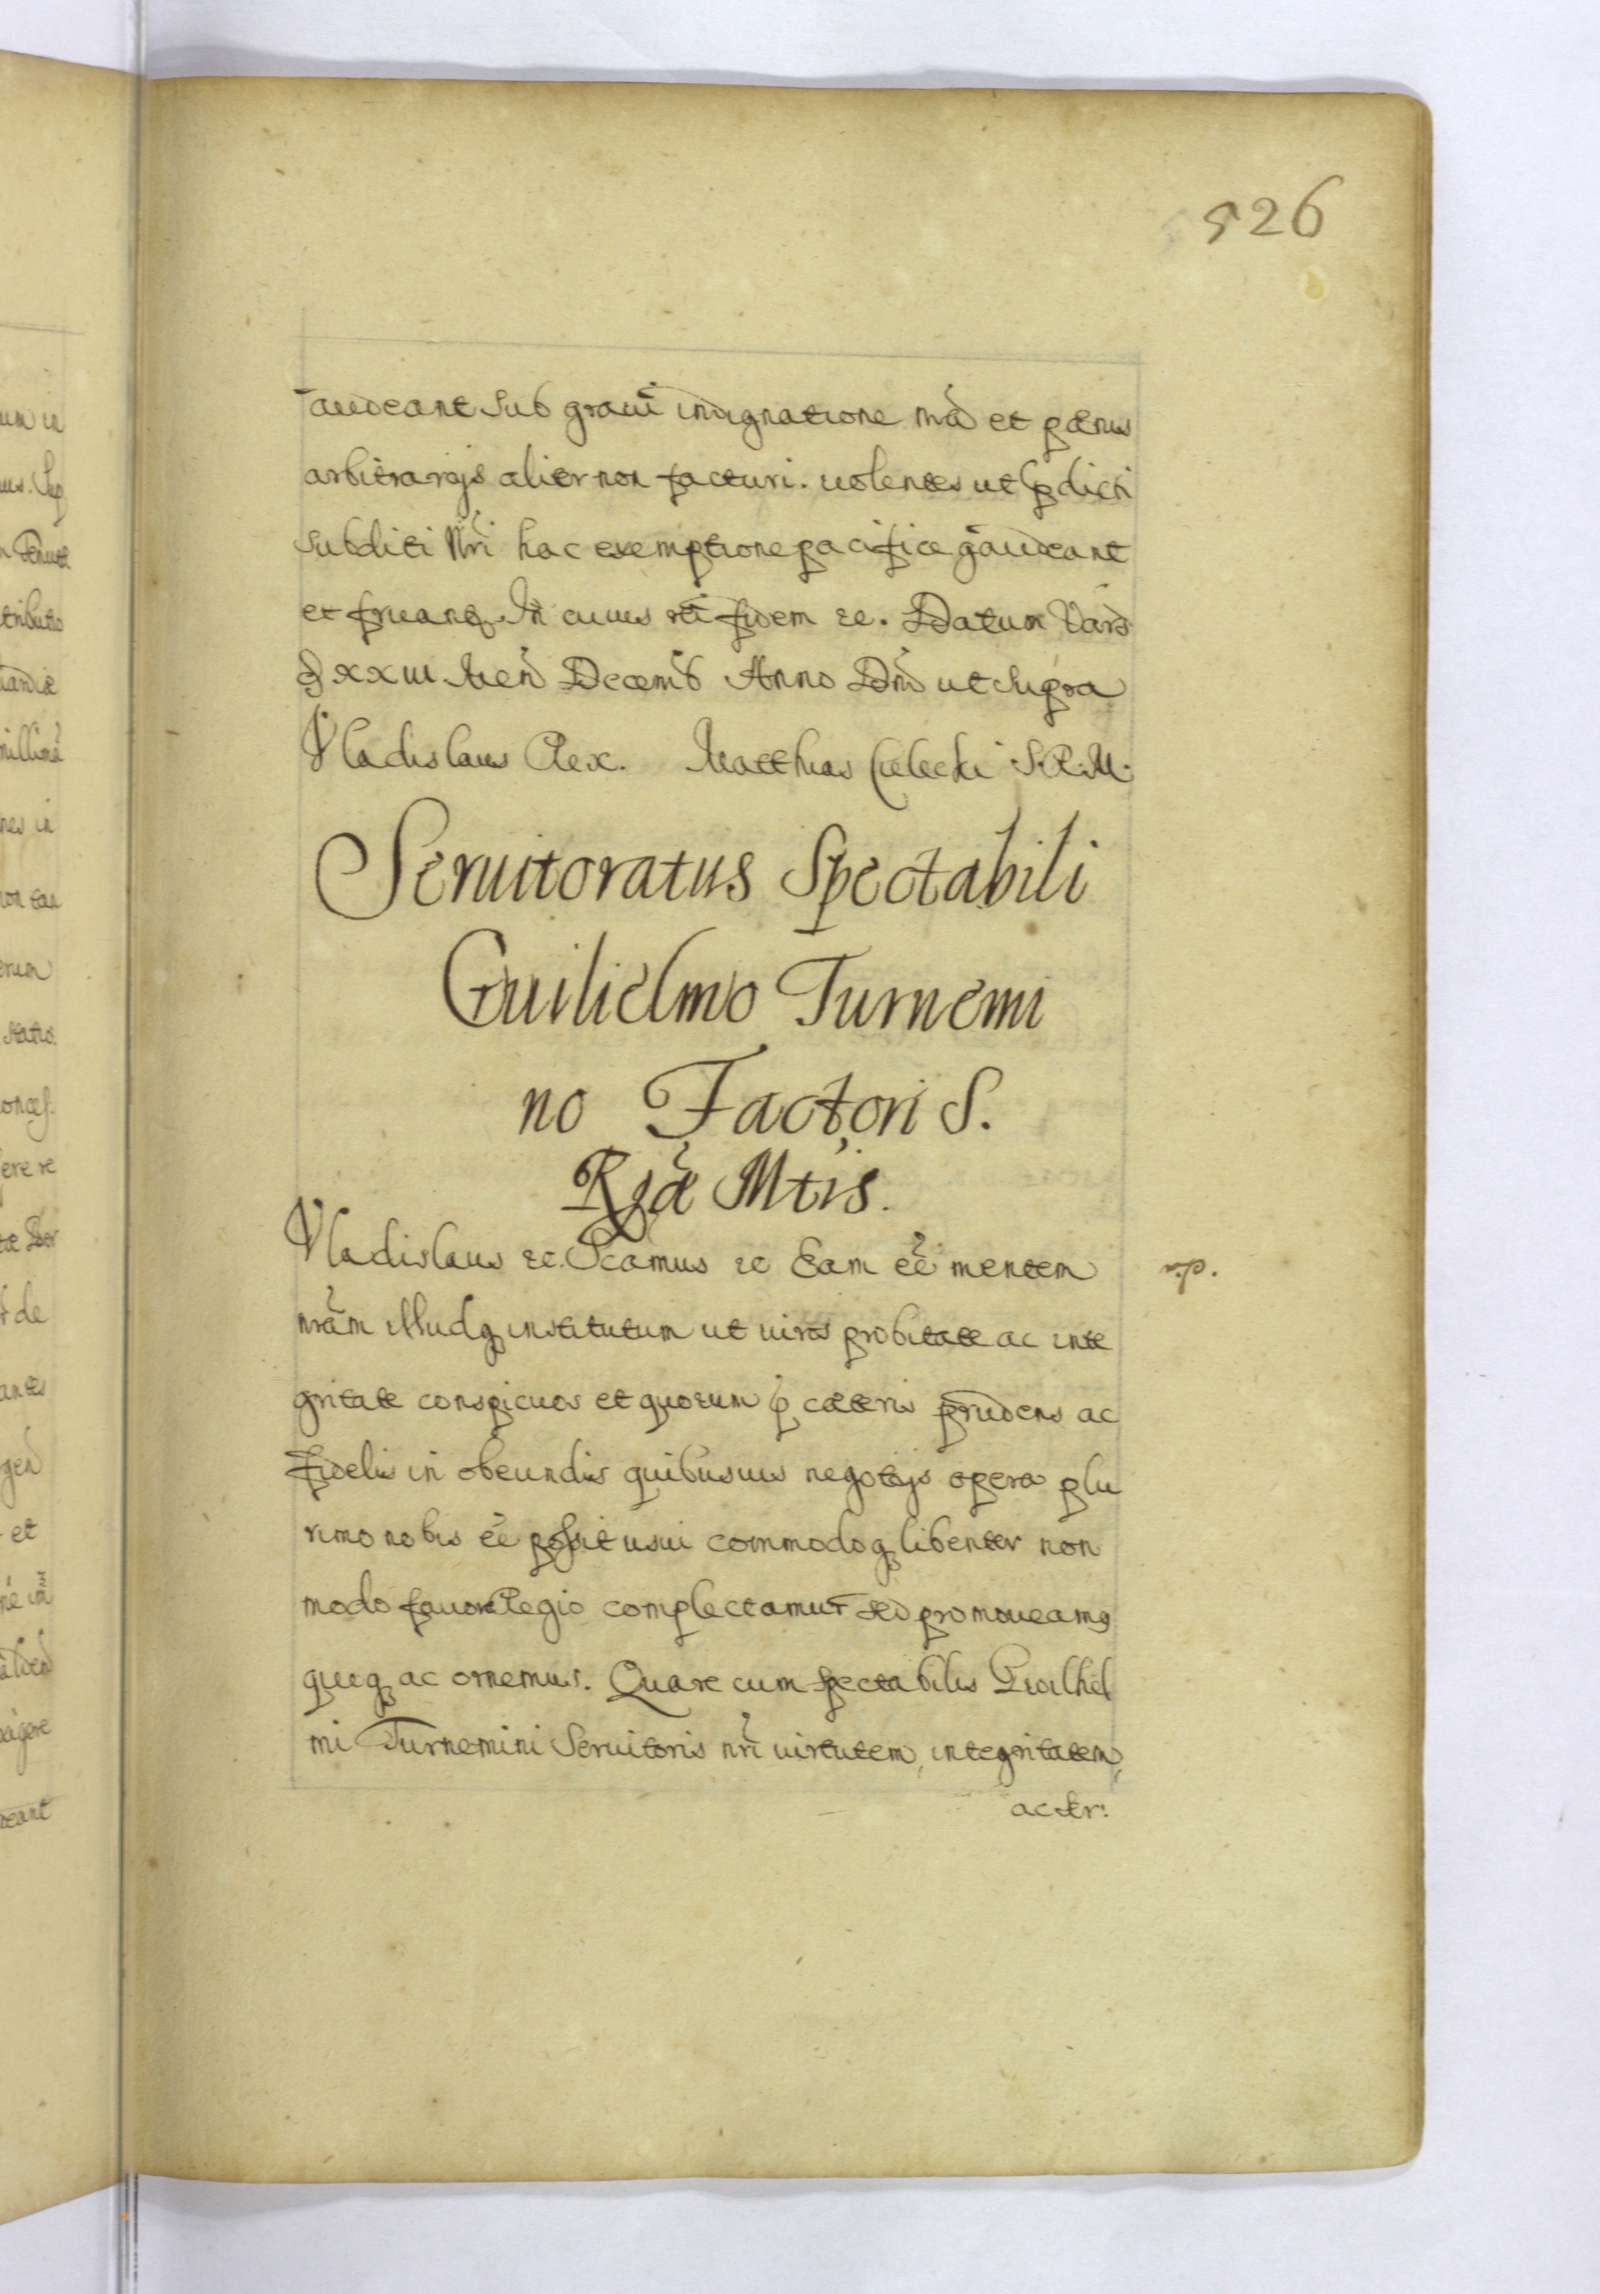 526
audeant sub graui indignatione nrâ et poenis
arbitrarijs aliter non facturi. uolentes ut pdicti
subditi Nri hac exemptione pacifice gaudeant
et fruantq. In cuius rei fidem etc. Datum Vars
D XXIII Men Decemb Anno Dni ut supra
Vladislaus Rex. Matthias Cielecki S.R.M.
Seruitoratus Spectabili
Guilielmo Turnemi
no Factori S.
Rgæ Mtis.
Vladislaus etc. Scamus etc Eam eē mentem
nram illudq institutum ut uiros probitate ac inte
gritate conspicuos et quorum p cæteris prudens ac
fidelis in obeundis quibusuis negotijs opera plu
rimo nobis eē possit usui commodoq libenter non
modo fauore Regio complectamur sed promoueamq
queq ac ornemus. Quare cum spectabilis Guilhel
mi Turnemini Seruitoris nri uirtutem, integritatem,
ac der: